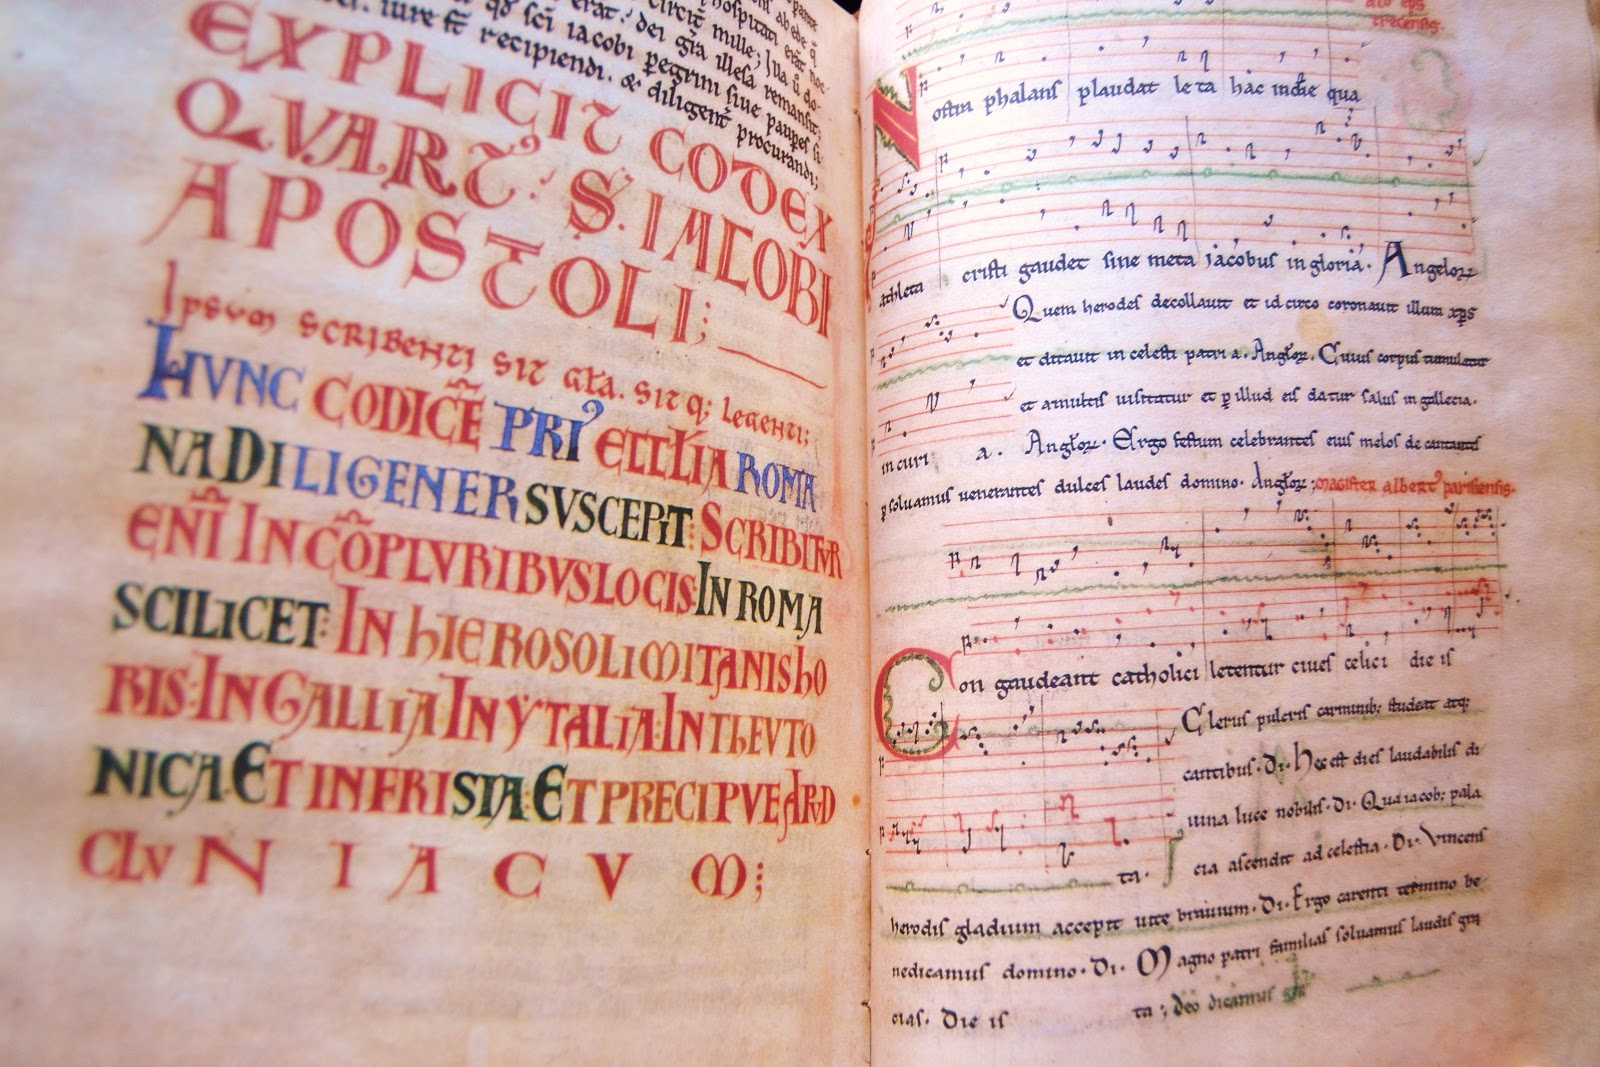 erat: dei gr̄a illesa remansit;
qd sc̄i iacobi peregrini siue pauperes si
iure st̄ recipiendi. & diligent procurandi;
EXPLICIT CODEX
QVARTꝰ: S. IACOBI
APOSTOLI;
Ipsum scribenti sit gl̄a. sit q; legenti;
HVNC CODICĒ PRIꝰ ECCL̄IA ROMA
NA DILIGENER SVSCEPIT: SCRIBITVR
ENĪ IN CŌPLVRIBVS LOCIS: IN ROMA
SCILICET: IN HIEROSOLIMITANIS HO
RIS: IN GALLIA IN YTALIA: IN THEVTO
NICA: ET IN FRISIA: ET PRECIPVE APVD
CLVNIACVM;
ato eps
trecensis.
Nostra phalans plaudat leta hac in die qua
athleta cristi gaudet sine meta jacobus in gloria. Angeloꝝ
Quem herodes decollauit et id circo coronauit illum xp̄s
et ditauit in celesti patria. Angl̄oꝝ. Cuius corpus tumulatur
et a multis uisitatur et ꝑ illud eis datur salus in gallecia.
in curi a. Angl̄oꝝ. Ergo festum celebrantes eius melos decantantes
ꝑsoluamus uenerantes dulces laudes domino. Angl̄oꝝ; magister albertꝰ parisiensis.
Con gaudeant catholici letentur ciues celici die is
Clerus pulcris carminib; studeat atq;
cantibus. Di. Hec est dies laudabilis di
uina luce nobilis. Di. Qua iacob; pala
ta. cia ascendit ad celestia. Di. Vincens
herodis gladium accepit uite brauium. Di. Ergo carenti termino be
nedicamus domino. Di. Magno patri familias soluamus laudis gr̄a
cias. Die is ta; deo dicamus